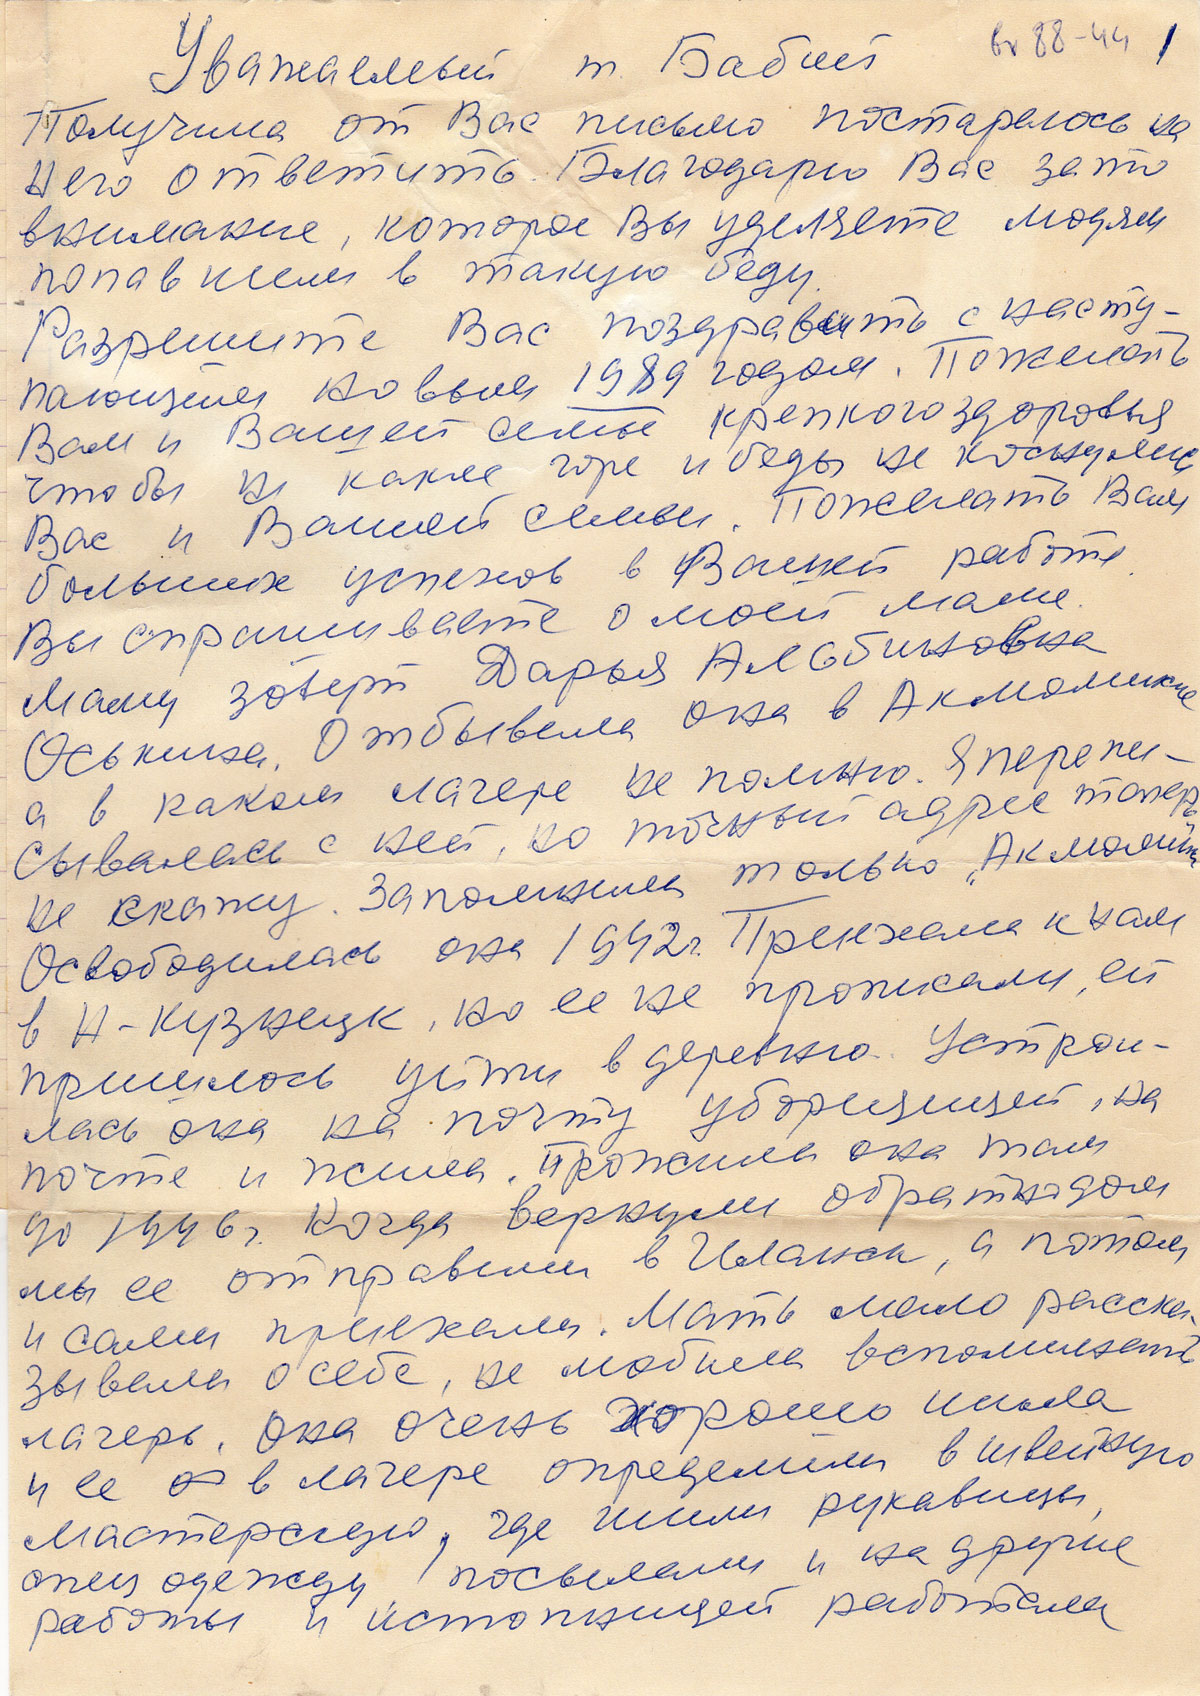 вх 88-44 1
Уважаемый т. Бабий
Получила от Вас письмо постараюсь на
него ответить. Благодарю Вас за то
внимание, которое Вы уделяете людям
попавшем в такую беду.
Разрешите Вас поздравить с насту-
пающим новым 1989 годом. Пожелать
Вам и Вашей семье крепкого здоровья
чтобы ни какие горе и беды не коснулись
Вас и Вашей семьи. Пожелать Вам
больших успехов в Вашей работе.
Вы спрашиваете о моей маме.
Маму зовут Дарья Альбиновна
Оськина. Отбывала она в Акмолинске
а в каком лагере не помню. Я перепи-
сывалась с ней, но точный адрес теперь
не скажу. Запомнила только „Акмолинск
Освободилась она 1942г. Приехала к нам
в Н-Кузнецк, но ее не прописали, ей
пришлось уйти в деревню. Устрои-
лась она на почту уборщицей, на
почте и жила. Прожила она там
до 1946г. Когда вернули обратно дом
мы ее отправили в Иланск, а потом
и сами приехали. Мать мало расска-
зывала о себе, не любила вспоминать
лагерь. Она очень хорошо шила
и ее в лагере определили в швейную
мастерскую, где шили рукавицы,
спец одежду, посылали и на другие
работы и истопницей работала